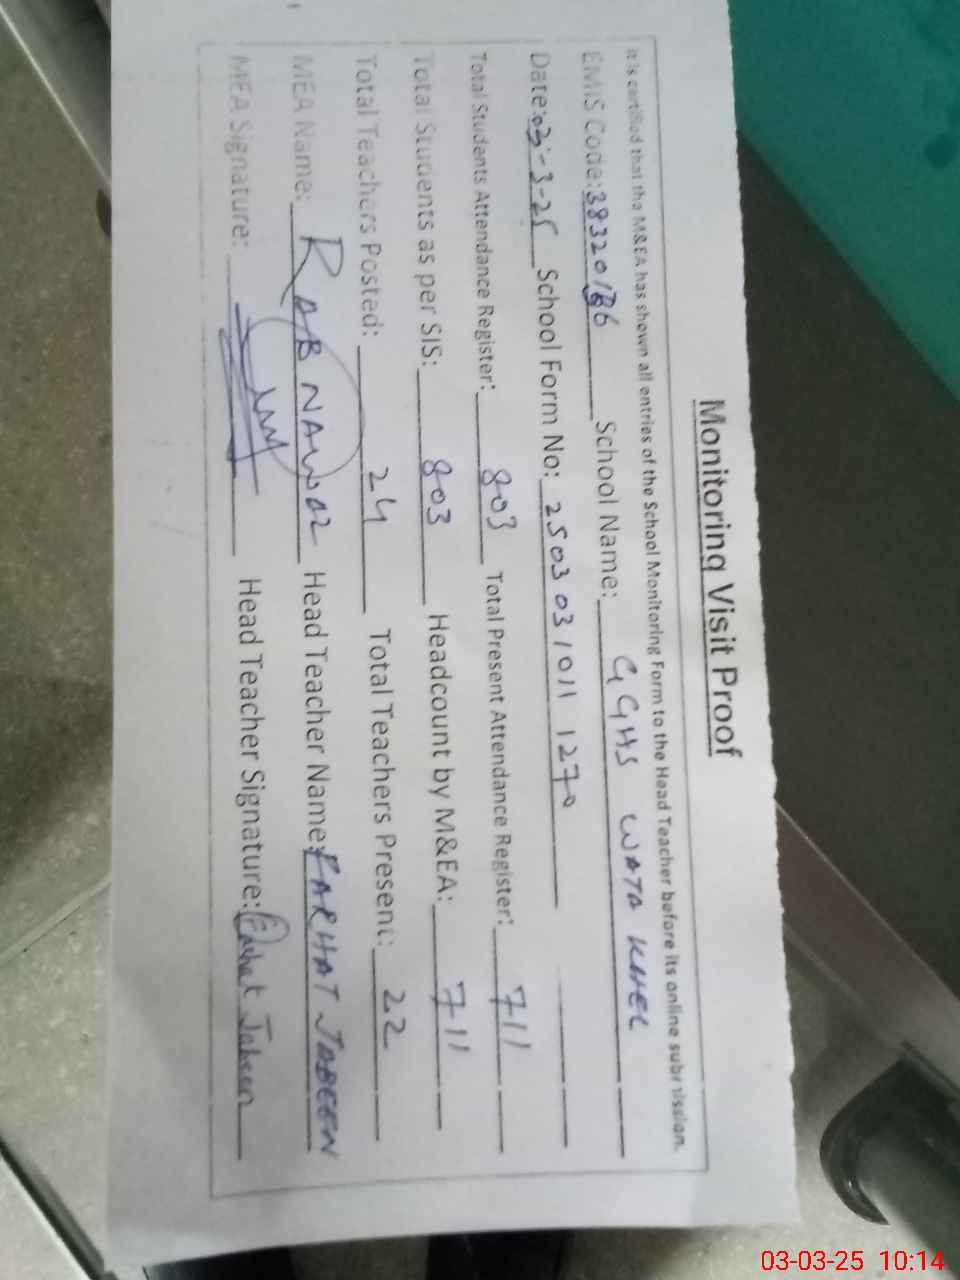 Monitoring Visit Proof
It is certified that the M&EA has shown all entries of the School Monitoring Form to the Head Teacher before its online submission.
EMIS Code: 38320186 School Name: GGHS WATA KHEL
Date: 03-3-25 School Form No: 2503031011 1270
Total Students Attendance Register: 803 Total Present Attendance Register: 711
Total Students as per SIS: 803 Headcount by M&EA: 711
Total Teachers Posted: 24 Total Teachers Present: 22
MEA Name: RAB NAWAZ Head Teacher Name: FARHAT JABEEN
MEA Signature: Head Teacher Signature: Farhat Jabeen
03-03-25 10:14